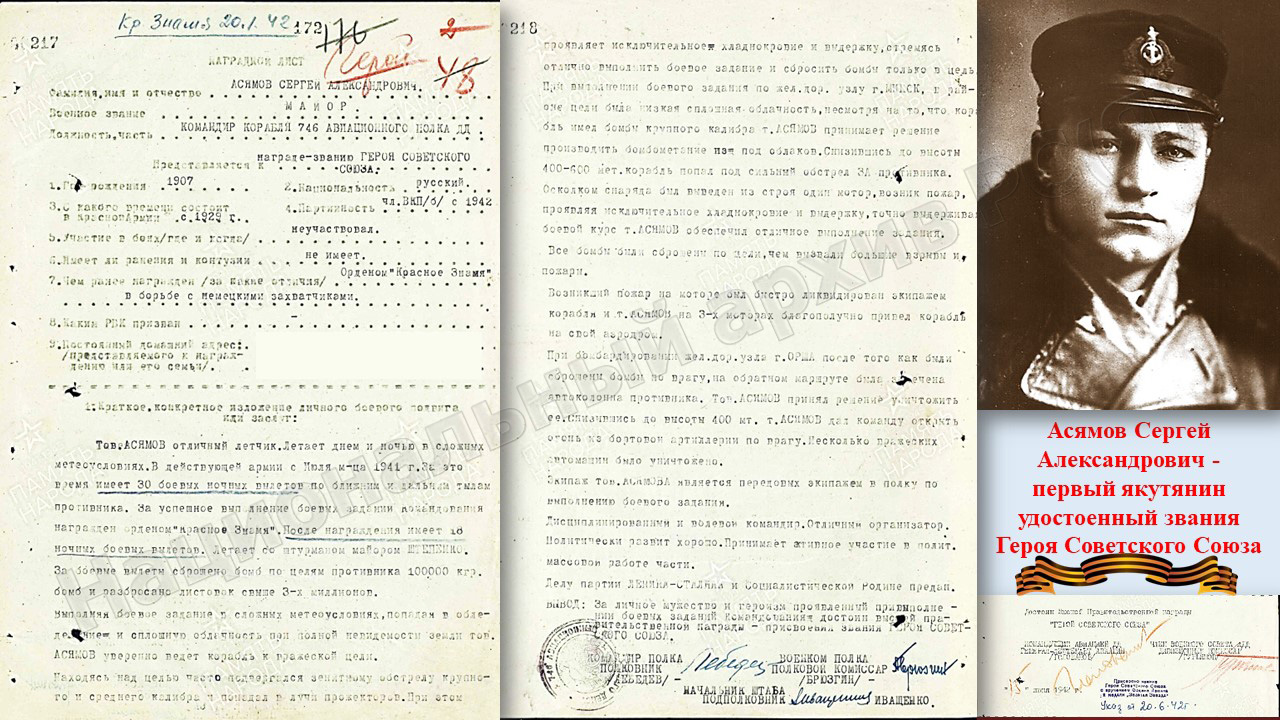 Кр Знамя 20.1.42
172
176
2
217
Герой
48
НАГРАДНОЙ ЛИСТ
Фамилия,имя и отчество АСЯМОВ СЕРГЕЙ АЛЕКСАНДРОВИЧ.
Военное звание МАЙОР.
Должность,часть КОМАНДИР КОРАБЛЯ 746 АВИАЦИОННОГО ПОЛКА ДД
Представляется к награде-званию ГЕРОЯ СОВЕТСКОГО
СОЮЗА.
1.Год рождения 1907 2.Национальность русский.
3.С какого времени состоит
в красной Армии с 1929 г. 4.Партийность чл.ВКП/б/ с 1942
5.Участие в боях/где и когда/ неучаствовал.
6.Имеет ли ранения и контузии не имеет.
7.Чем ранее награжден /за какие отличия/ Орденом"Красное Знамя"
в борьбе с немецкими захватчиками.
8.Каким РВК призван -
9.Постоянный домашний адрес:
/представляемого к награж-
дению или его семьи/.
1.Краткое,конкретное изложение личного боевого подвига
или заслуг:
Тов.АСЯМОВ отличный летчик.Летает днем и ночью в сложных
метеоусловиях.В действующей армии с Июля м-ца 1941 г.За это
время имеет 30 боевых ночных вылетов по ближним и дальним тылам
противника. За успешное выполнение боевых заданий командования
награжден орденом"Красное Знамя".После награждения имеет 18
ночных боевых вылетов. Летает со штурманом майором ШТЕПЕНКО.
За боевые вылеты сброшено бомб по целям противника 100000 кгр.
бомб и разбросано листовок свыше 3-х миллионов.
Выполняя боевое задание в сложных метеоусловиях,попадая в обле-
денение и сплошную облачность при полной невидимости земли тов.
АСЯМОВ уверенно ведет корабль к вражеской цели.
Находясь над целью часто подвергался зенитному обстрелу крупно-
го и среднего калибра и попадал в лучи прожекторов,
218
проявляет исключительное хладнокровие и выдержку,стремясь
отлично выполнить боевое задание и сбросить бомбы только в цель.
При выполнении боевого задания по жел.дор. узлу г.МИНСК, в рай-
оне цели была низкая сплошная облачность,несмотря на то,что кора
бль имел бомбы крупного калибра т.АСЯМОВ принимает решение
производить бомбометание из под облаков.Снизившись до высоты
400-600 мет.корабль попал под сильный обстрел ЗА противника.
Осколком снаряда был выведен из строя один мотор,возник пожар,
проявляя исключительное хладнокровие и выдержку,точно выдерживая
боевой курс т.АСЯМОВ обеспечил отличное выполнение задания.
Все бомбы были сброшены по цели,чем вызвали большие взрывы и
пожары.
Возникший пожар на моторе был быстро ликвидирован экипажем
корабля и т.АСЯМОВ на 3-х моторах благополучно привел корабль
на свой аэродром.
При бомбардировании жел.дор.узла г.ОРША после того как были
сброшены бомбы по врагу,на обратном маршруте была замечена
автоколонна противника. Тов.АСЯМОВ принял решение уничтожить
ее.Снизившись до высоты 400 мт. т.АСЯМОВ дал команду открыть
огонь из бортовой артиллерии по врагу.Несколько вражеских
автомашин было уничтожено.
Экипаж тов.АСЯМОВА является передовых экипажем в полку по
выполнению боевого задания.
Дисциплинированный и волевой командир.Отличный организатор.
Политически развит хорошо.Принимает активное участие в полит.
массовой работе части.
Делу партии ЛЕНИНА-СТАЛИНА и Социалистической Родине предан.
ВЫВОД: За личное мужество и героизм проявленный привыполне-
нии боевых заданий командования достоин высшей пра-
вительственной награды - присвоения звания ГЕРОЯ СОВЕТ-
СКОГО СОЮЗА.
КОМАНДИР ПОЛКА ВОЕНКОМ ПОЛКА
КОМИССАР
/ЛЕБЕДЕВ/ /БРЮЗГИН/
НАЧАЛЬНИК ШТАБА
ПОДПОЛКОВНИК ИВАЩЕНКО.
Национальный архив Р
Асямов Сергей
Александрович -
первый якутянин
удостоенный звания
Героя Советского Союза
Достоин Высшей Правительственной награды
"ГЕРОЙ СОВЕТСКОГО СОЮЗА"
июня 1942 г.
Присвоено звание
Героя Советского Союза
с вручением Ордена Ленина
и медали „Золотая Звезда"
Указ от 20.6.42г